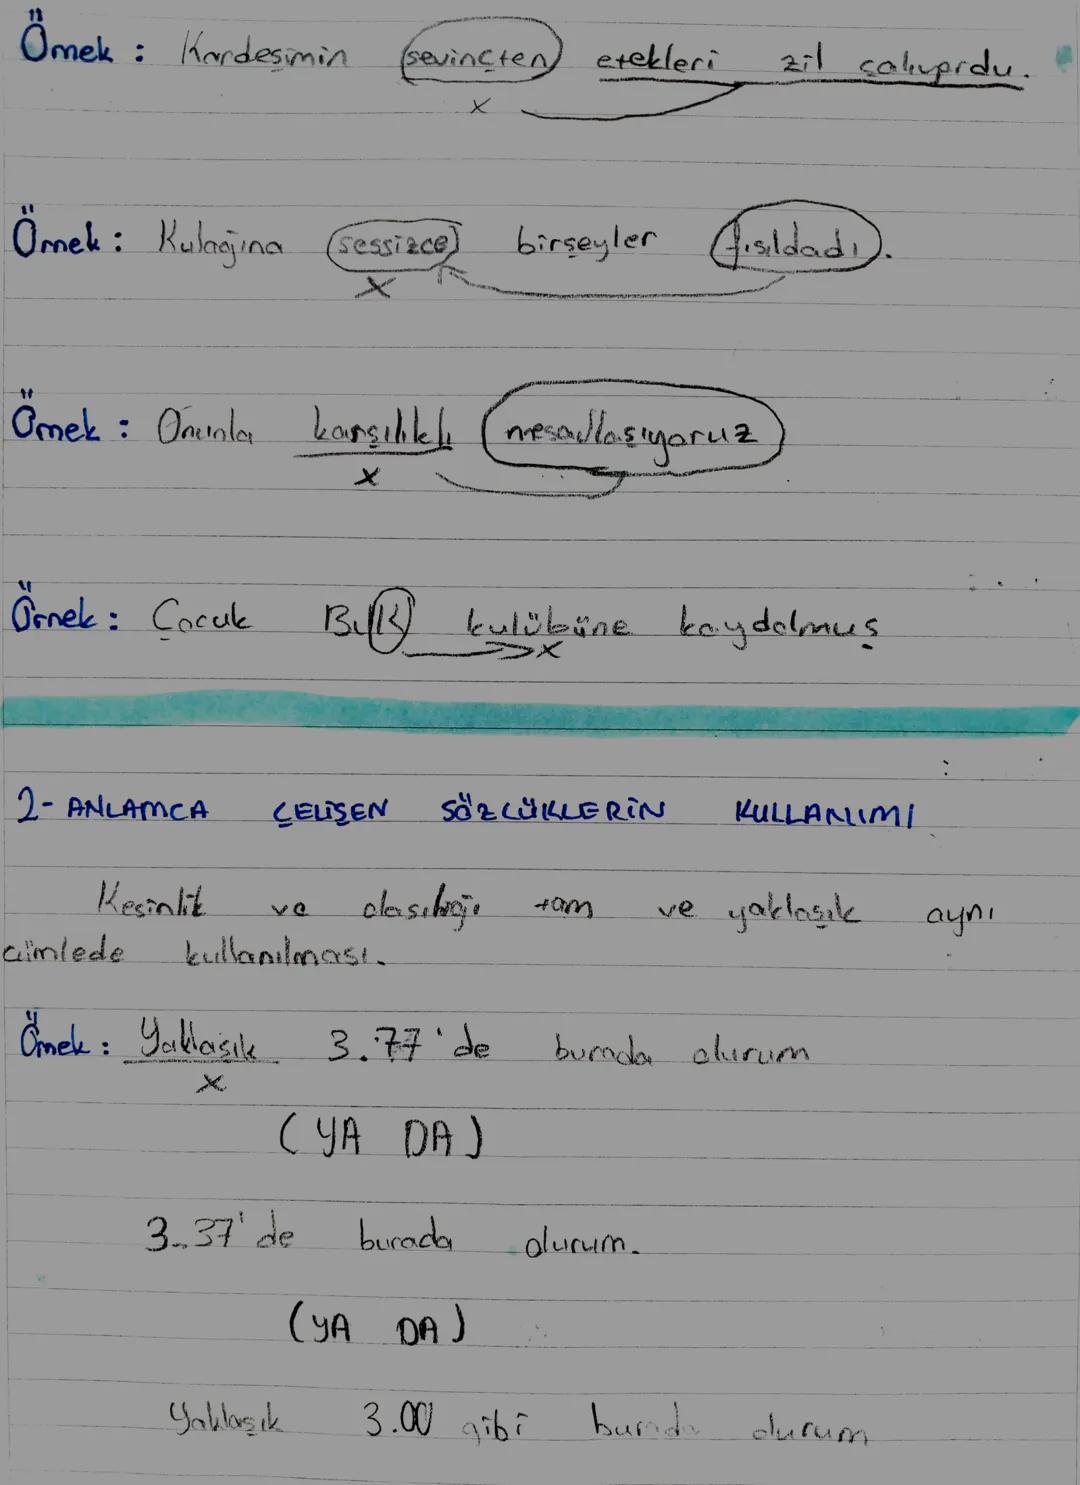 Örnek : Kardeşimin sevinçten etekleri zil çalıyordu.
x
Örnek : Kulağına sessizce birşeyler fısıldadı.
x
Örnek : Onunla karşılıklı mesajlaşıyoruz
x
Örnek : Çocuk kulübüne kaydolmuş
x
2- ANLAMCA ÇELİŞEN SÖZCÜKLERİN KULLANIMI
Kesinlik ve olasılığı tam ve yaklaşık aynı
cümlede kullanılması.
Örnek : Yaklaşık 3.77'de burada olurum
x
(YA DA)
3.37'de burada olurum.
(YA DA)
Yaklaşık 3.00 gibi burada olurum